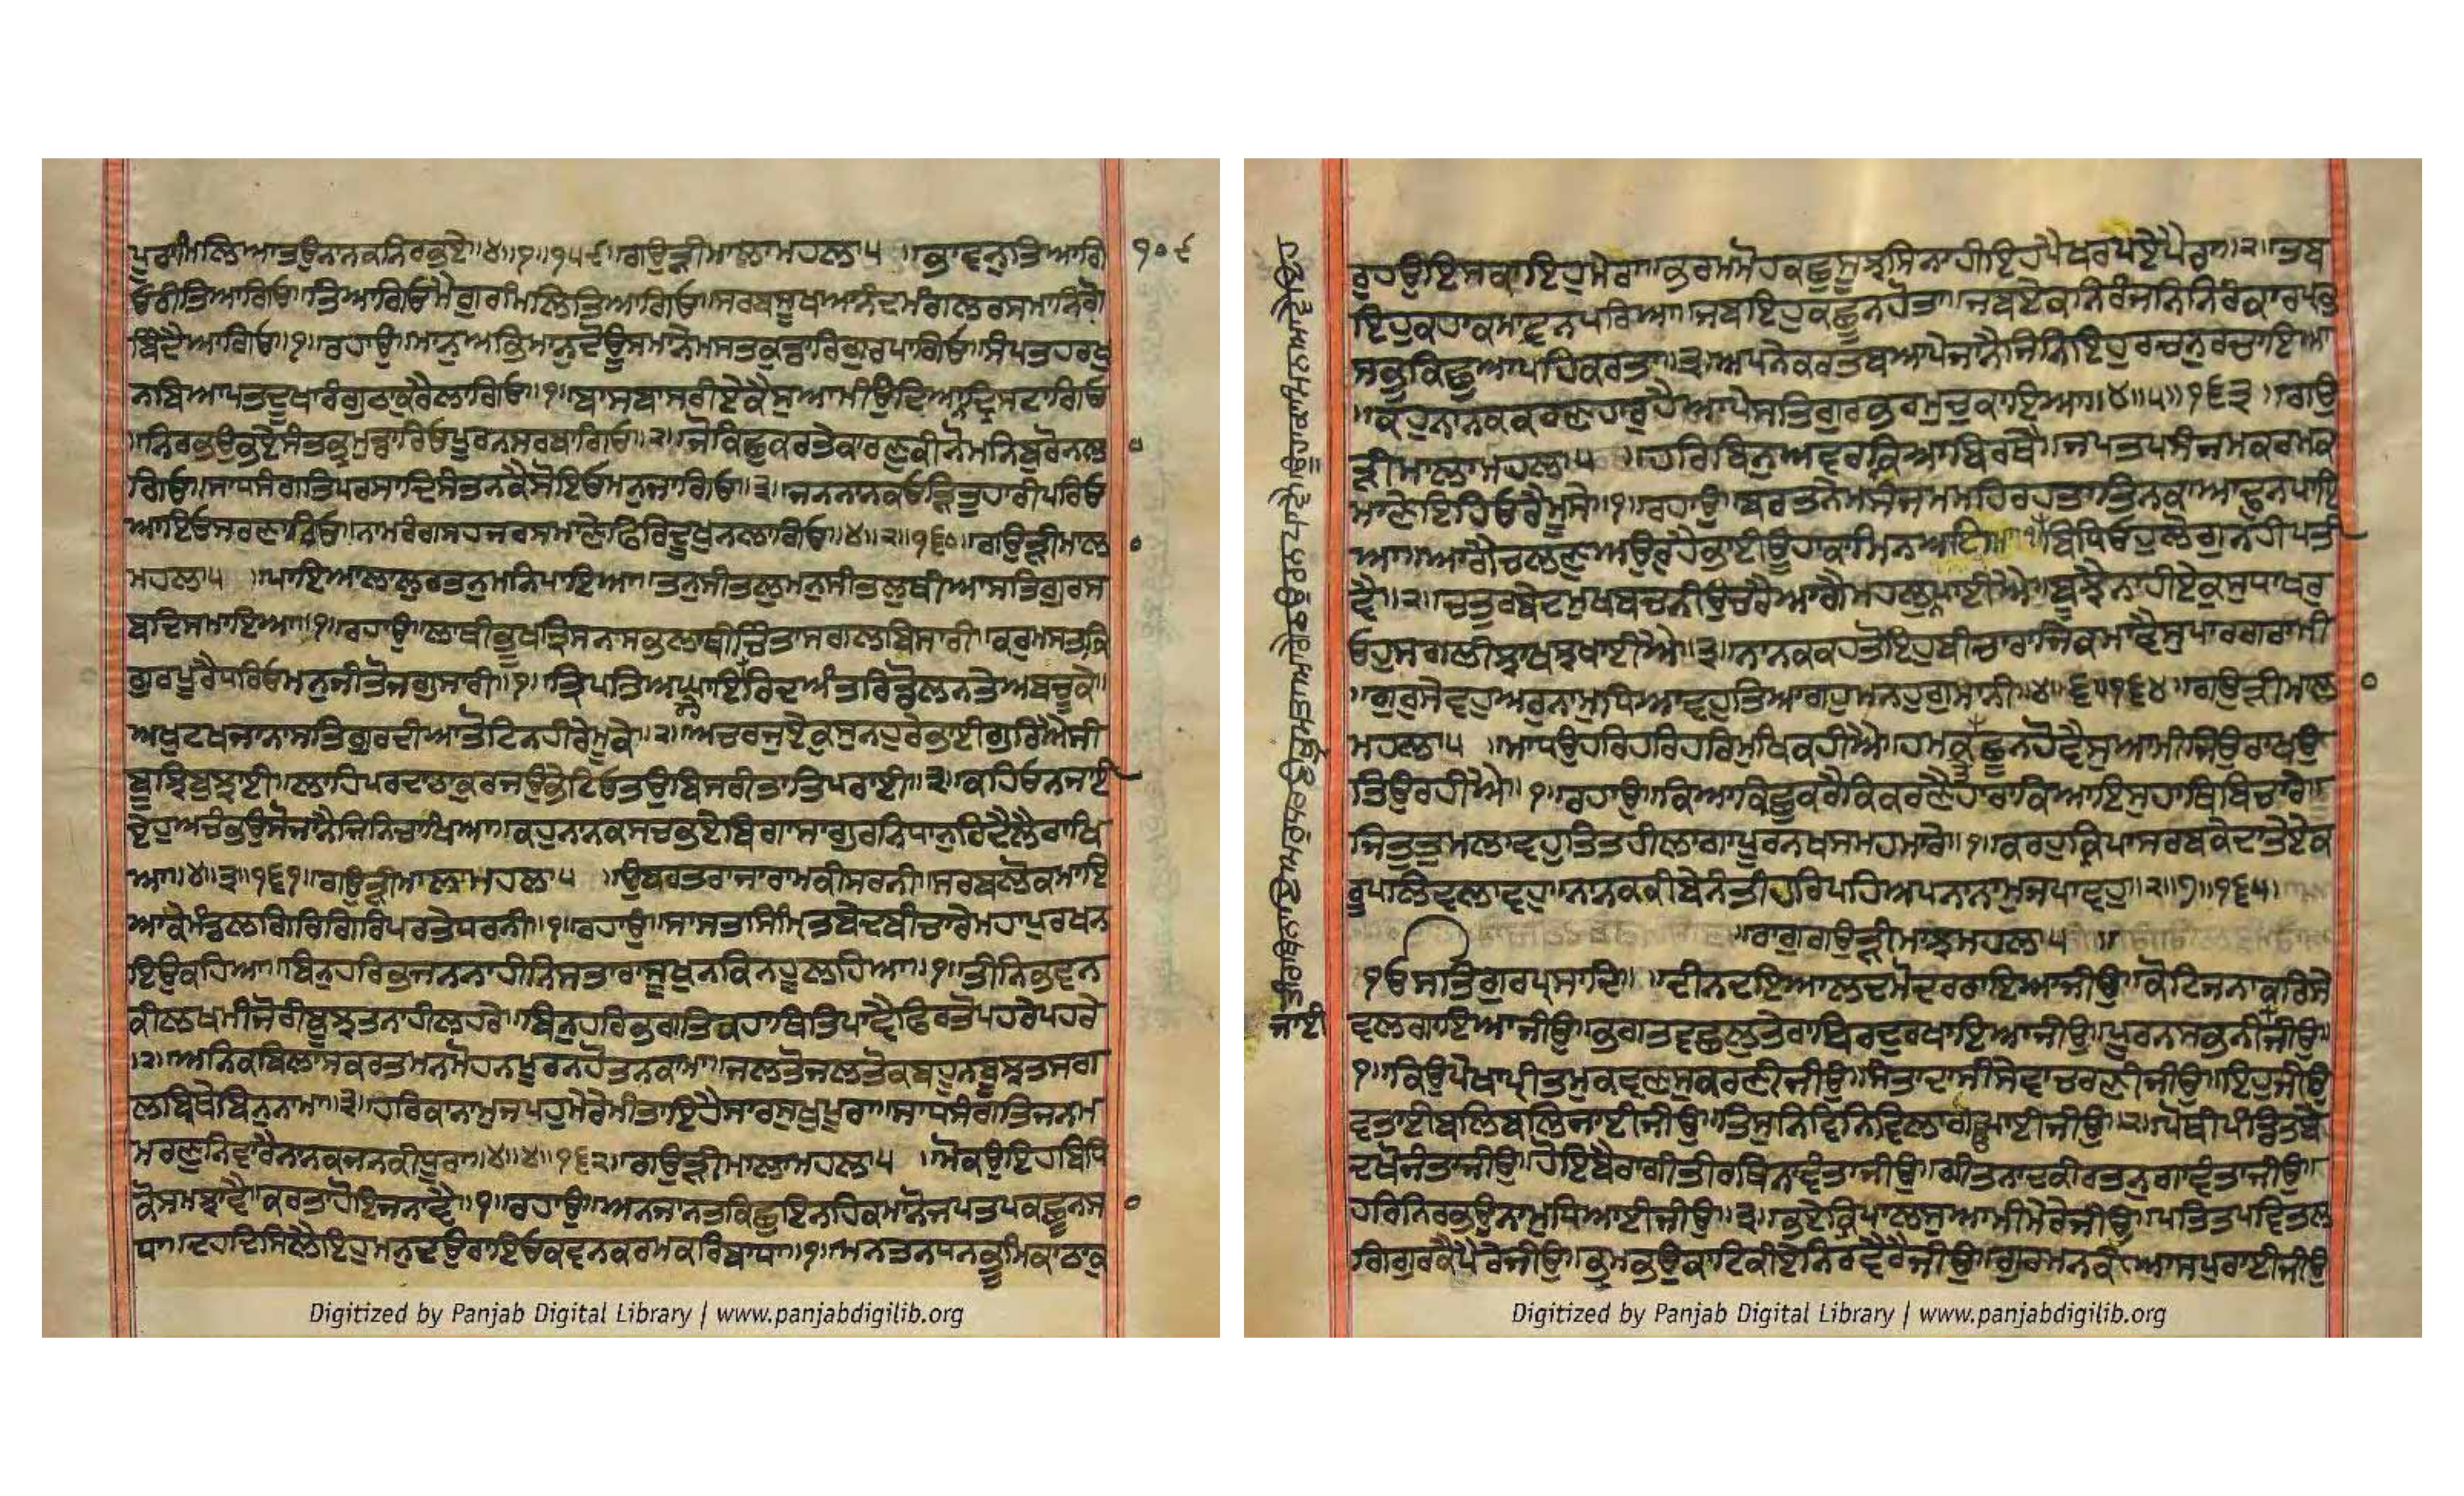 ਪੁਰਾਮਿਲਿਆਤਉਨਾਨਕਨਿਰਭਏ॥੪॥੧॥੧੫੯॥ਰਾਗਉੜੀਮਾਲਾਮਹਲਾ੫ ॥ਭਾਵਨੁਤਿਆਗਿ ੧੦੯
ਓਰੀਤਿਆਗਿਓ॥ਤਿਆਗਿਓਮੈਗੁਰਮਿਲਿਤਿਆਗਿਓ॥ਸਰਬਸੁਖਆਨੰਦਮੰਗਲਰਸਮਾਨਿਗੋ
ਬਿੰਦੈਆਗਿਓ॥੧॥ਰਹਾਉ॥ਮਾਨੁਅਭਿਮਾਨੁਦੋਊਸਮਾਨੇਮਸਤਕੁਡਾਰਿਗੁਰਪਾਗਿਓ॥ਸੰਪਤਹਰਖੁ
ਨਬਿਆਪਤਦੂਖਾਰੰਗੁਠਾਕੁਰੈਲਾਗਿਓ॥੧॥ਬਾਸਬਾਸਰੀਏਕੈਸੁਆਮੀਉਦਿਆਨਦ੍ਰਿਸਟਾਗਿਓ
॥ਨਿਰਭਉਭਏਸੰਤਭ੍ਰਮੁਡਾਰਿਓਪੂਰਨਸਰਬਾਗਿਓ॥੨॥ਜੋਕਿਛੁਕਰਤੈਕਾਰਣੁਕੀਨੋਮਨਿਬੁਰੋਨਲਾ
ਗਿਓ॥ਸਾਧਸੰਗਤਿਪਰਸਾਦਿਸੰਤਨਕੈਸੋਇਓਮਨੁਜਾਗਿਓ॥੩॥ਜਨਨਾਨਕਓੜਿਤੁਹਾਰੀਪਰਿਓ
ਆਇਓਸਰਣਾਗਿਓ॥ਨਾਮਰੰਗਸਹਜਰਸਮਾਣੇਫਿਰਿਦੂਖੁਨਲਾਗਿਓ॥੪॥੨॥੧੬੦॥ਗਉੜੀਮਾਲਾ
ਮਹਲਾ੫ ॥ਪਾਇਆਲਾਲੁਰਤਨੁਮਨਿਪਾਇਆ॥ਤਨੁਸੀਤਲੁਮਨੁਸੀਤਲੁਥੀਆਸਤਿਗੁਰਸ
ਬਦਿਸਮਾਇਆ॥੧॥ਰਹਾਉ॥ਲਾਥੀਭੂਖਤ੍ਰਿਸਨਸਭਲਾਥੀਚਿੰਤਾਸਗਲਬਿਸਾਰੀ॥ਕਰੁਮਸਤਕਿ
ਗੁਰਪੂਰੈਧਰਿਓਮਨੁਜੀਤੋਜਗੁਸਾਰੀ॥੧॥ਤ੍ਰਿਪਤਿਅਘਾਇਰਿਦਅੰਤਰਿਡੋਲਨਤੇਅਬਚੂਕੇ॥
ਅਖੁਟਖਜਾਨਾਸਤਿਗੁਰਦੀਆਤੋਟਿਨਹੀਰੇਮੂਕੇ॥੨॥ਅਚਰਜੁਏਕੁਸੁਨਹੁਰੇਭਾਈਗੁਰਿਐਸੀ
ਬੂਝਿਬੁਝਾਈ॥ਲਾਹਿਪਰਦਾਠਾਕੁਰਜਉਭੇਟਿਓਤਉਬਿਸਰੀਤਾਤਿਪਰਾਈ॥੩॥ਕਹਿਓਨਜਾਈ
ਏਹੁਅਚੰਭਉਸੋਜਾਨੈਜਿਨਿਚਾਖਿਆ॥ਕਹੁਨਾਨਕਸਚਭਏਬਿਗਾਸਾਗੁਰਨਿਧਾਨੁਰਿਦੈਲੈਰਾਖਿ
ਆ॥੪॥੩॥੧੬੧॥ਗਉੜੀਮਾਲਾਮਹਲਾ੫ ॥ਉਬਰਤਰਾਜਾਰਾਮਕੀਸਰਨੀ॥ਸਰਬਲੋਕਮਾਇ
ਆਕੇਮੰਡਲਗਿਰਿਗਿਰਿਪਰਤੇਧਰਨੀ॥੧॥ਰਹਾਉ॥ਸਾਸਤਸਿੰਮ੍ਰਿਤਬੇਦਬੀਚਾਰੇਮਹਾਪੁਰਖਨ
ਇਉਕਹਿਆ॥ਬਿਨੁਹਰਿਭਜਨਨਾਹੀਨਿਸਤਾਰਾਸੂਖੁਨਕਿਨਹੂੰਲਹਿਆ॥੧॥ਤੀਨਿਭਵਨ
ਕੀਲਖਮੀਜੋਰੀਬੂਝਤਨਾਹੀਲਹਰੇ॥ਬਿਨੁਹਰਿਭਗਤਿਕਹਾਥਿਤਿਪਾਵੈਫਿਰਤੋਪਹਰੇਪਹਰੇ
॥੨॥ਅਨਿਕਬਿਲਾਸਕਰਤਮਨਮੋਹਨਪੂਰਨਹੋਤਨਕਾਮਾ॥ਜਲਤੋਜਲਤੋਕਬਹੁਨਬੂਝਤਸਗ
ਲਬ੍ਰਿਥੇਬਿਨੁਨਾਮਾ॥੩॥ਹਰਿਕਾਨਾਮੁਜਪਹੁਮੇਰੇਮੀਤਾਇਹੈਸਾਰਸੁਖੁਪੂਰਾ॥ਸਾਧਸੰਗਤਿਜਨਮ
ਮਰਣੁਨਿਵਾਰੈਨਾਨਕਜਨਕੀਧੂਰਾ॥੪॥੪॥੧੬੨॥ਗਉੜੀਮਾਲਾਮਹਲਾ੫ ॥ਮੋਕਉਇਹਬਿਧਿ
ਕੋਸਮਝਾਵੈ॥ਕਰਤਾਹੋਇਜਨਾਵੈ॥੧॥ਰਹਾਉ॥ਅਨਜਾਨਤਕਿਛੁਇਨਹਿਕਮਾਨੋਜਪਤਪਕਛੂਨਸਾ
ਧਾ॥ਦਹਦਿਸਿਲੈਇਹੁਮਨੁਦਉਰਾਇਓਕਵਨਕਰਮਕਰਿਬਾਧਾ॥੧॥ਮਨਤਨਧਨਭੂਮਿਕਾਠਾਕੁ
Digitized by Panjab Digital Library | www.panjabdigilib.org
ਰੁਹਉਇਸਕਾਇਹੁਮੇਰਾ॥ਭਰਮਮੋਹਕਛੁਸੂਝਸਿਨਾਹੀਇਹਪੈਖਰਪਏਪੈਰਾ॥੨॥ਤਬ
ਇਹੁਕਹਾਕਮਾਵਨਪਰਿਆ॥ਜਬਇਹੁਕਛੂਨਹੋਤਾ॥ਜਬਏਕਨਿਰੰਜਨਿਨਿਰੰਕਾਰਪ੍ਰਭ
ਸਭੁਕਿਛੁਆਪਹਿਕਰਤਾ॥੩॥ਅਪਨੇਕਰਤਬਆਪੇਜਾਨੈਜਿਨਿਇਹੁਰਚਨੁਰਚਾਇਆ
॥ਕਹੁਨਾਨਕਕਰਣਹਾਰੁਹੈਆਪੇਸਤਿਗੁਰਭਰਮੁਚੁਕਾਇਆ॥੪॥੫॥੧੬੩॥ਗਉ
ੜੀਮਾਲਾਮਹਲਾ੫ ॥ਹਰਿਬਿਨੁਅਵਰਕ੍ਰਿਆਬਿਰਥੇ॥ਜਪਤਪਸੰਜਮਕਰਮਕ
ਮਾਣੇਇਹਿਓਰੈਮੂਸੇ॥੧॥ਰਹਾਉ॥ਬਰਤਨੇਮਸੰਜਮਮਹਿਰਹਤਾਤਿਨਕਾਆਢੁਨਪਾਇ
ਆ॥ਆਗੈਚਲਣੁਅਉਰੁਹੈਭਾਈਊਹਾਕਾਮਿਨਆਇਆ॥੧॥ਬਿਧਿਓਹੁਲੋਗਾਨਹੀਪਤੀ
ਵੈ॥੨॥ਚਤੁਰਬੇਦਮੁਖਬਚਨੀਉਚਰੈਆਗੈਮਹਲੁਨਪਾਈਐ॥ਬੂਝੈਨਾਹੀਏਕੁਸੁਧਾਖਰੁ
ਓਹੁਸਗਲੀਝਾਖਝਖਾਈਐ॥੩॥ਨਾਨਕਕਹਤੋਇਹੁਬੀਚਾਰਾਜਿਕਮਾਵੈਸੁਪਾਰਗਰਾਮੀ
॥ਗੁਰੁਸੇਵਹੁਅਰੁਨਾਮੁਧਿਆਵਹੁਤਿਆਗਹੁਮਨਹੁਗੁਮਾਨੀ॥੪॥੬॥੧੬੪॥ਗਉੜੀਮਾਲਾ
ਮਹਲਾ੫ ॥ਮਾਧਉਹਰਿਹਰਿਹਰਿਮੁਖਿਕਹੀਐ॥ਹਮਤੇਕਛੂਨਹੋਵੈਸੁਆਮੀਜਿਉਰਾਖਉ
ਤਿਉਰਹੀਐ॥੧॥ਰਹਾਉ॥ਕਿਆਕਿਛੁਕਰੈਕਿਕਰਣੈਹਾਰਾਕਿਆਇਸੁਹਾਥਿਬਿਚਾਰੇ॥
ਜਿਤੁਤੁਮਲਾਵਹੁਤਿਤਹੀਲਾਗਾਪੂਰਨਖਸਮਹਮਾਰੇ॥੧॥ਕਰਹੁਕ੍ਰਿਪਾਸਰਬਕੇਦਾਤੇਏਕ
ਰੂਪਲਿਵਲਾਵਹੁ॥ਨਾਨਕਕੀਬੇਨੰਤੀਹਰਿਪਹਿਅਪਨਾਨਾਮੁਜਪਾਵਹੁ॥੨॥੭॥੧੬੫॥
॥ਰਾਗੁਗਉੜੀਮਾਝਮਹਲਾ੫ ॥
੧ਓਸਤਿਗੁਰਪ੍ਰਸਾਦਿ॥ ॥ਦੀਨਦਇਆਲਦਮੋਦਰਰਾਇਆਜੀਉ॥ਕੋਟਿਜਨਾਕਰਿਸੇ
ਵਲਗਾਇਆਜੀਉ॥ਭਗਤਵਛਲੁਤੇਰਾਬਿਰਦੁਰਖਾਇਆਜੀਉ॥ਪੂਰਨਸਭਨੀਜੀਉ॥
੧॥ਕਿਉਪੇਖਾਪ੍ਰੀਤਮੁਕਵਣਸੁਕਰਣੀਜੀਉ॥ਸੰਤਾਦਾਸੀਸੇਵਾਚਰਣੀਜੀਉ॥ਇਹੁਜੀਉ
ਵਤਾਈਬਲਿਬਲਿਜਾਈਜੀਉ॥ਤਿਸੁਨਿਵਿਨਿਵਿਲਾਗਉਪਾਈਜੀਉ॥੨॥ਪੋਥੀਪੰਡਿਤਬੇ
ਦਖੋਜੰਤਾਜੀਉ॥ਹੋਇਬੈਰਾਗੀਤੀਰਥਿਨਾਵੰਤਾਜੀਉ॥ਗੀਤਨਾਦਕੀਰਤਨੁਗਾਵੰਤਾਜੀਉ॥
ਹਰਿਨਿਰਭਉਨਾਮੁਧਿਆਈਜੀਉ॥੩॥ਭਏਕ੍ਰਿਪਾਲਸੁਆਮੀਮੇਰੇਜੀਉ॥ਪਤਿਤਪਵਿਤਲ
ਗਿਗੁਰਕੈਪੈਰੇਜੀਉ॥ਭ੍ਰਮੁਭਉਕਾਟਿਕੀਏਨਿਰਵੈਰੇਜੀਉ॥ਗੁਰਮਨਕੀਆਸਪੂਰਾਈਜੀਉ
Digitized by Panjab Digital Library | www.panjabdigilib.org